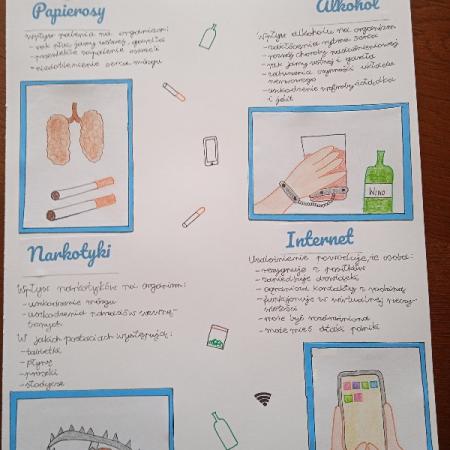 Papierosy
Wpływ palenia na organizm:
- rak płuc, jamy ustnej, gardła
- przewlekłe zapalenie oskrzeli
- niedotlenienie serca, mózgu
Alkohol
Wpływ alkoholu na organizm:
- zakłócenia rytmu serca
- rozwój choroby nadciśnieniowej
- rak jamy ustnej i gardła
- zaburzenia czynności układu
nerwowego
- uszkodzenie wątroby, żołądka
i jelit
WINO
Narkotyki
Wpływ narkotyków na organizm:
- uszkodzenie mózgu
- uszkodzenia narządów wewnę-
trznych
W jakich postaciach występują:
- tabletki
- płyny
- proszki
- słodycze
Internet
Uzależnienie powoduje, że osoba:
- rezygnuje z posiłków
- zaniedbuje obowiązki
- ogranicza kontakty z rodziną
- funkcjonuje w wirtualnej rzeczy-
wistości
- może być rozdrażniona
- może mieć ataki paniki